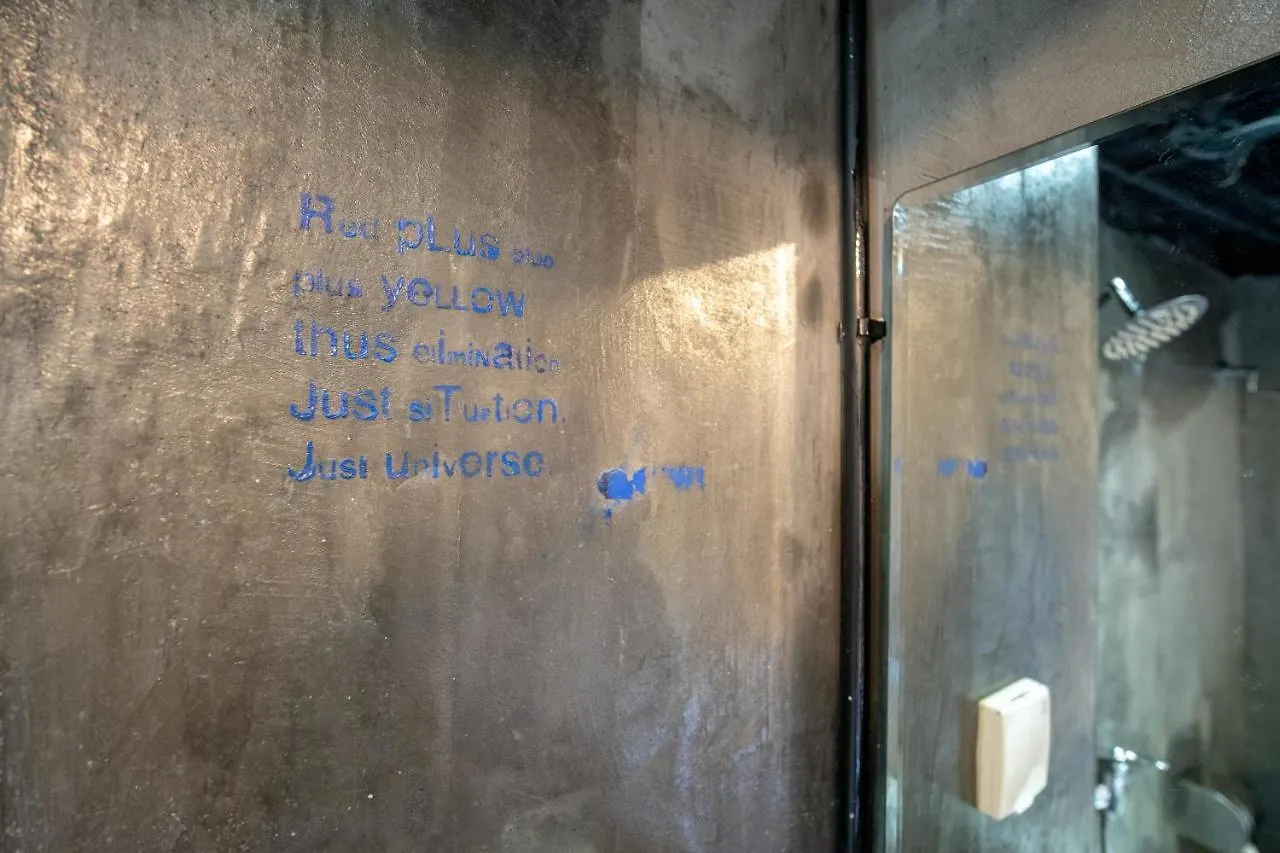 Red pLus blue
plus yeLLOW
thus eliminatioN
Just siTuation.
Just universe